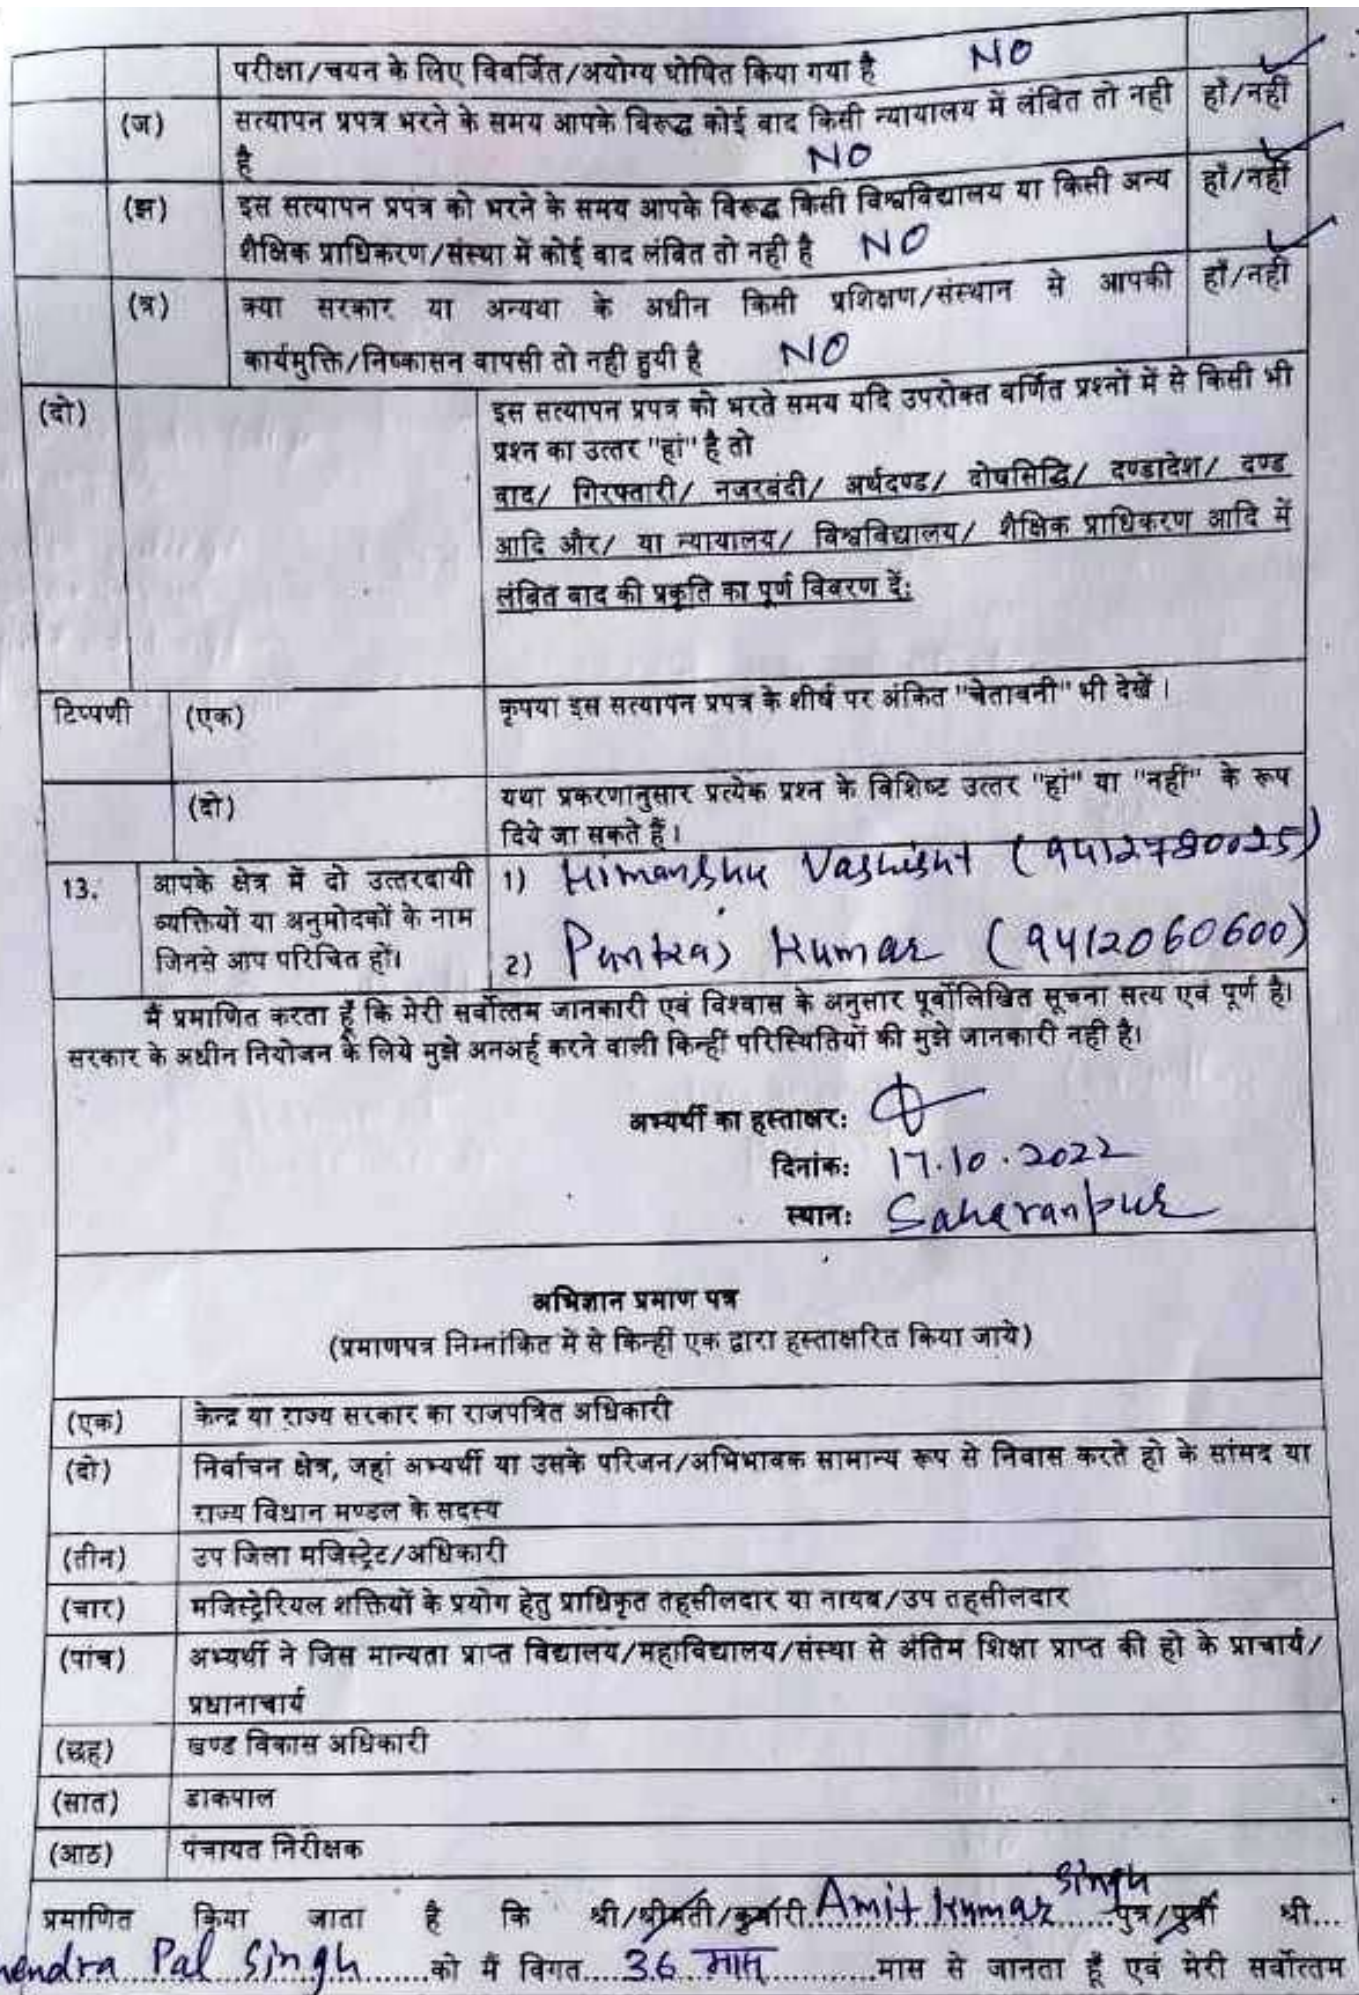 परीक्षा/चयन के लिए विवर्जित/अयोग्य घोषित किया गया है NO
(ज) सत्यापन प्रपत्र भरने के समय आपके विरूद्ध कोई वाद किसी न्यायालय में लंबित तो नही हाँ/नहीं
है NO
(झ) इस सत्यापन प्रपत्र को भरने के समय आपके विरूद्ध किसी विश्वविद्यालय या किसी अन्य हाँ/नहीं
शैक्षिक प्राधिकरण/संस्था में कोई वाद लंबित तो नही है NO
(त्र) क्या सरकार या अन्यथा के अधीन किसी प्रशिक्षण/संस्थान से आपकी हाँ/नहीं
कार्यमुक्ति/निष्कासन वापसी तो नही हुयी है NO
(दो) इस सत्यापन प्रपत्र को भरते समय यदि उपरोक्त वर्णित प्रश्नों में से किसी भी
प्रश्न का उत्तर "हां" है तो
वाद/ गिरफ्तारी/ नजरबंदी/ अर्थदण्ड/ दोषसिद्धि/ दण्डादेश/ दण्ड
आदि और/ या न्यायालय/ विश्वविद्यालय/ शैक्षिक प्राधिकरण आदि में
लंबित वाद की प्रकृति का पूर्ण विवरण दें:
टिप्पणी (एक) कृपया इस सत्यापन प्रपत्र के शीर्ष पर अंकित "चेतावनी" भी देखें।
(दो) यथा प्रकरणानुसार प्रत्येक प्रश्न के विशिष्ट उत्तर "हां" या "नहीं" के रूप
दिये जा सकते हैं।
13. आपके क्षेत्र में दो उत्तरदायी
व्यक्तियों या अनुमोदकों के नाम
जिनसे आप परिचित हों।
1) Himanshu Vashisht (9412780025)
2) Pankaj Kumar (9412060600)
मैं प्रमाणित करता हूँ कि मेरी सर्वोत्तम जानकारी एवं विश्वास के अनुसार पूर्वोलिखित सूचना सत्य एवं पूर्ण है।
सरकार के अधीन नियोजन के लिये मुझे अनअर्ह करने वाली किन्हीं परिस्थितियों की मुझे जानकारी नही है।
अभ्यर्थी का हस्ताक्षर:
दिनांक: 17.10.2022
स्थान: Saharanpur
अभिज्ञान प्रमाण पत्र
(प्रमाणपत्र निम्नांकित में से किन्हीं एक द्वारा हस्ताक्षरित किया जाये)
(एक) केन्द्र या राज्य सरकार का राजपत्रित अधिकारी
(दो) निर्वाचन क्षेत्र, जहां अभ्यर्थी या उसके परिजन/अभिभावक सामान्य रूप से निवास करते हो के सांसद या
राज्य विधान मण्डल के सदस्य
(तीन) उप जिला मजिस्ट्रेट/अधिकारी
(चार) मजिस्ट्रेरियल शक्तियों के प्रयोग हेतु प्राधिकृत तहसीलदार या नायब/उप तहसीलदार
(पांच) अभ्यर्थी ने जिस मान्यता प्राप्त विद्यालय/महाविद्यालय/संस्था से अंतिम शिक्षा प्राप्त की हो के प्राचार्य/
प्रधानाचार्य
(छह) खण्ड विकास अधिकारी
(सात) डाकपाल
(आठ) पंचायत निरीक्षक
प्रमाणित किया जाता है कि श्री/श्रीमती/कुमारी Amit Kumar Singh पुत्र/पुत्री श्री...
Pal Singh को मैं विगत 36 मास मास से जानता हूँ एवं मेरी सर्वोत्तम